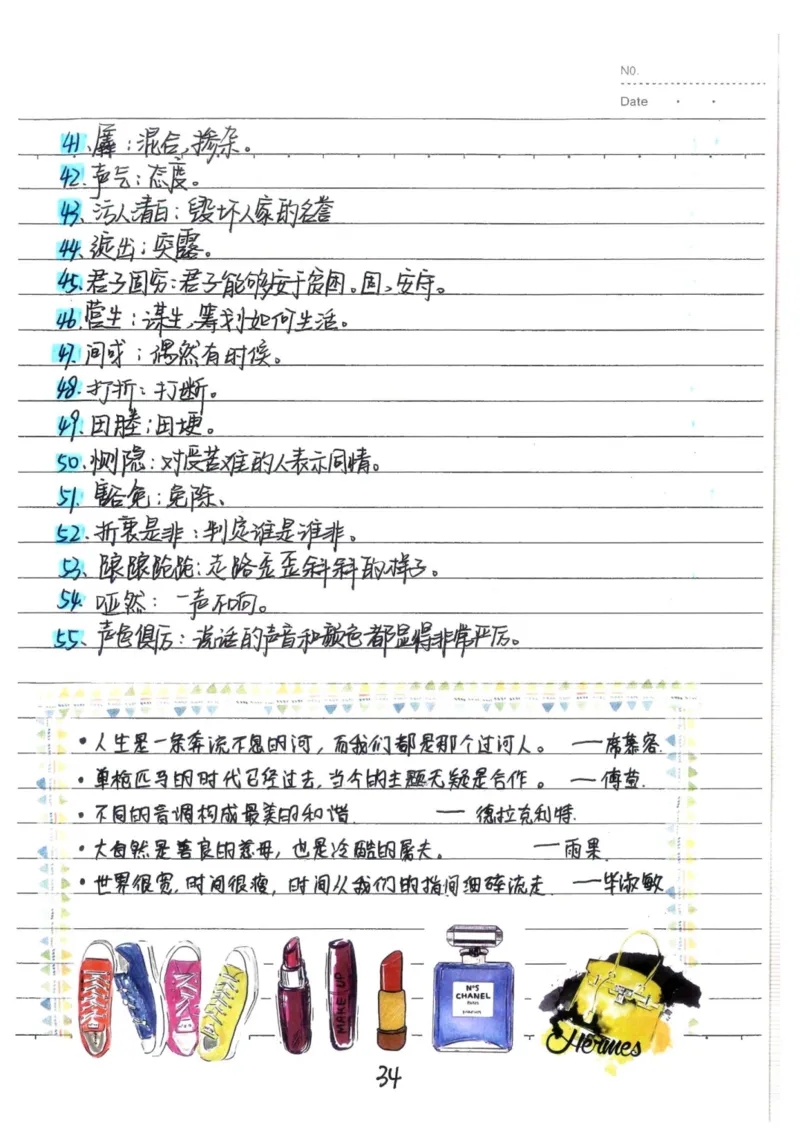 No.
Date
41、羼：混合,掺杂。
42.声气：态度。
43、污人清白：毁坏人家的名誉
44、绽出：突露。
45.君子固穷：君子能够安于贫困。固，安守。
46.营生：谋生,筹划如何生活。
47.间或：偶然有时候。
48.打折：打断。
49.田塍：田埂。
50.恻隐：对受苦难的人表示同情。
51.豁免：免除、
52.折衷是非：判定谁是谁非。
53、踉踉跄跄：走路歪歪斜斜的样子。
54.哑然：一声不响。
55、声色俱厉：说话的声音和颜色都显得非常严厉。
·人生是一条奔流不息的河，而我们都是那个过河人。——席慕容.
·单枪匹马的时代已经过去,当今的主题无疑是合作。——傅莹.
·不同的音调构成最美的和谐. ——德拉克利特.
·大自然是善良的慈母，也是冷酷的屠夫。——雨果.
·世界很宽,时间很瘦，时间从我们的指间细碎流走.——毕淑敏
MAKE-UP
N°5
CHANEL
PARIS
PARFUM
Hermes
34